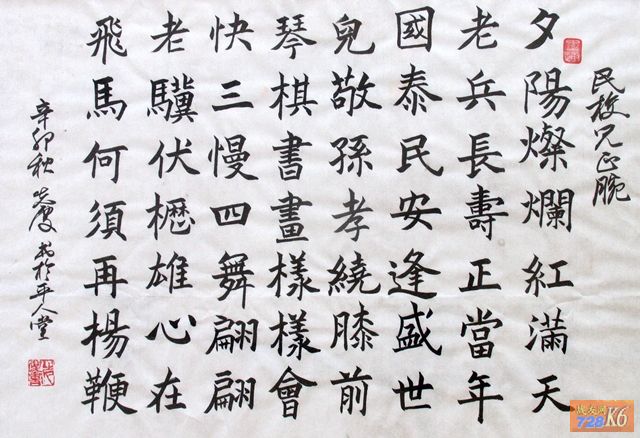 夕陽燦爛紅滿天
老兵長壽正當年
國泰民安逢盛世
兒敬孫孝繞膝前
琴棋書畫樣樣會
快三慢四舞翩翩
老驥伏櫪雄心在
飛馬何須再楊鞭
辛卯秋 於平人堂
728K6